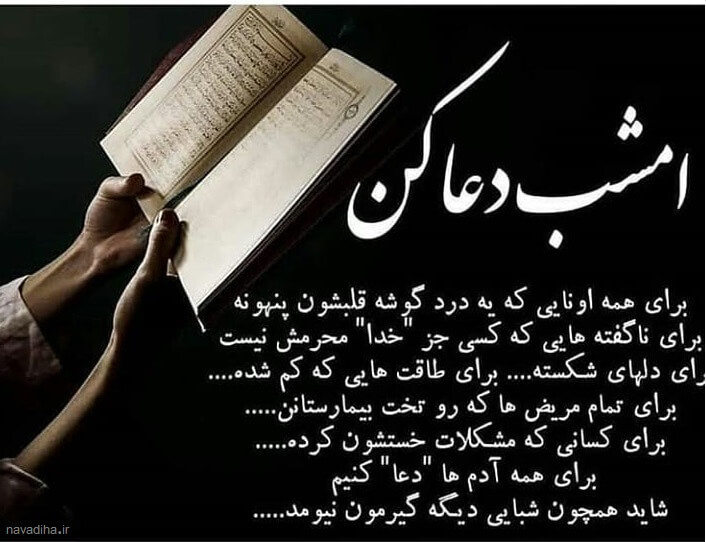 امشب دعا کن
برای همه اونایی که یه درد گوشه قلبشون پنهونه
برای ناگفته هایی که کسی جز "خدا" محرمش نیست
برای دلهای شکسته.... برای طاقت هایی که کم شده....
برای تمام مریض ها که رو تخت بیمارستانن.....
برای کسانی که مشکلات خستشون کرده.....
برای همه آدم ها "دعا" کنیم
شاید همچون شبایی دیگه گیرمون نیومد.....
navadiha.ir